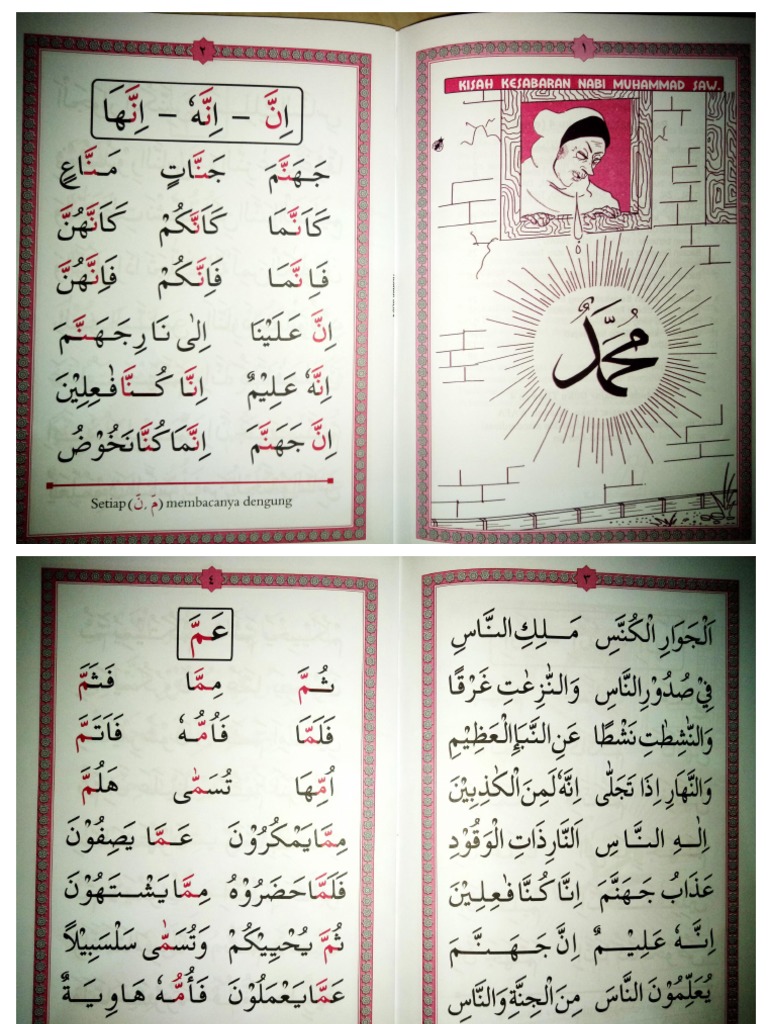 ١
KISAH KESABARAN NABI MUHAMMAD SAW.
مُحَمَّدٌ
٢
اِنَّ – اِنَّهٗ – اِنَّهَا
جَهَنَّمَ جَنَّاتٍ مَنَّاعٍ
كَاَنَّمَا كَاَنَّكُمْ كَاَنَّهُنَّ
فَاِنَّمَا فَاِنَّكُمْ فَاِنَّهُنَّ
اِنَّ عَلَيْنَا اِلٰى نَارِجَهَنَّمَ
اِنَّهٗ عَلِيْمٌ اِنَّا كُنَّا فٰعِلِيْنَ
اِنَّ جَهَنَّمَ اِنَّمَاكُنَّانَخُوْضُ
Setiap (مّ . نّ) membacanya dengung
٣
اَلْجَوَارِ الْكُنَّسِ مَلِكِ النَّاسِ
فِيْ صُدُوْرِ النَّاسِ وَالنّٰزِعٰتِ غَرْقًا
وَالنّٰشِطٰتِ نَشْطًا عَنِ النَّبَاِ الْعَظِيْمِ
وَالنَّهَارِ اِذَا تَجَلّٰى اِنَّهٗ لَمِنَ الْكٰذِبِيْنَ
اِلٰهِ النَّاسِ اَلنَّارِذَاتِ الْوَقُوْدِ
عَذَابُ جَهَنَّمَ اِنَّا كُنَّا فٰعِلِيْنَ
اِنَّهٗ عَلِيْمٌ اِنَّ جَهَنَّمَ
يُعَلِّمُوْنَ النَّاسَ مِنَ الْجِنَّةِ وَالنَّاسِ
٤
عَمَّ
ثُمَّ مِمَّا فَثَمَّ
فَلَمَّا فَاُمُّهٗ فَاَتَمَّ
اُمِّهَا تُسَمّٰى هَلُمَّ
مِمَّايَمْكُرُوْنَ عَمَّا يَصِفُوْنَ
فَلَمَّاحَضَرُوْهُ مِمَّايَشْتَهُوْنَ
ثُمَّ يُحْيِيْكُمْ وَتُسَمّٰى سَلْسَبِيْلًا
عَمَّايَعْمَلُوْنَ فَأُمُّهٗ هَاوِيَةٌ